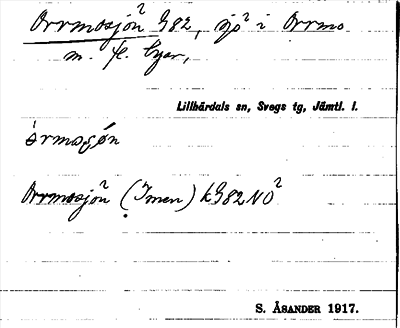 Orrmosjön² G82, sjö² i Orrmo
m. fl. byar,
Lillhärdals sn, Svegs tg, Jämtl. l.
òrmosjǿn
Orrmosjön² (Imen) kG82NO²
S. ÅSANDER 1917.